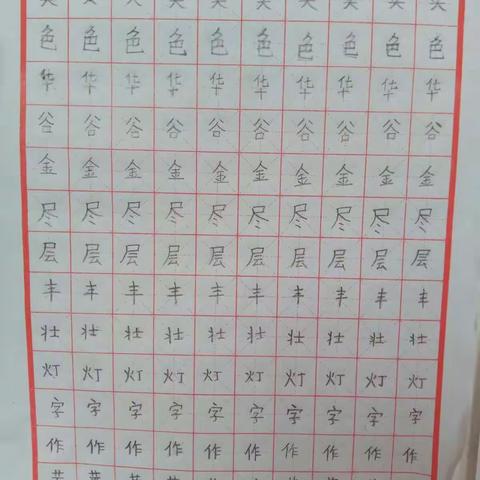 色 色 色 色 色 色 色 色 色 色
华 华 华 华 华 华 华 华 华 华
谷 谷 谷 谷 谷 谷 谷 谷 谷 谷
金 金 金 金 金 金 金 金 金 金
尽 尽 尽 尽 尽 尽 尽 尽 尽 尽
层 层 层 层 层 层 层 层 层 层
丰 丰 丰 丰 丰 丰 丰 丰 丰 丰
壮 壮 壮 壮 壮 壮 壮 壮 壮 壮
灯 灯 灯 灯 灯 灯 灯 灯 灯 灯
字 字 字 字 字 字 字 字 字 字
作 作 作 作 作 作 作 作 作 作